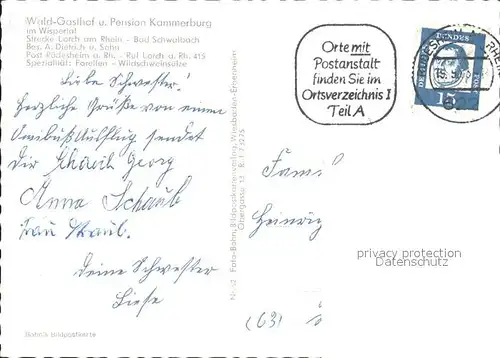 Wald-Gasthof u. Pension Kammerburg
im Wispertal
Strecke Lorch am Rhein - Bad Schwalbach
Bes. A. Dietrich u. Sohn
Post Rüdesheim a. Rh. - Ruf Lorch a. Rh. 415
Spezialität: Forellen - Wildschweinsülze
Liebe Schwester!
Herzliche Grüße von einem
Omnibusausflug sendet
Dir Georg
Anna Schaub
Frau Straub.
Deine Schwester
Liese
Bahn's Bildpostkarte
Nr. 52 Foto-Bahn, Bildpostkartenverlag, Wiesbaden-Erbenheim
Obergasse 13
Orte mit
Postanstalt
finden Sie im
Ortsverzeichnis I
Teil A
BUNDES
15
622
Famil
Heinrig
privacy protection
Datenschutz
(63)